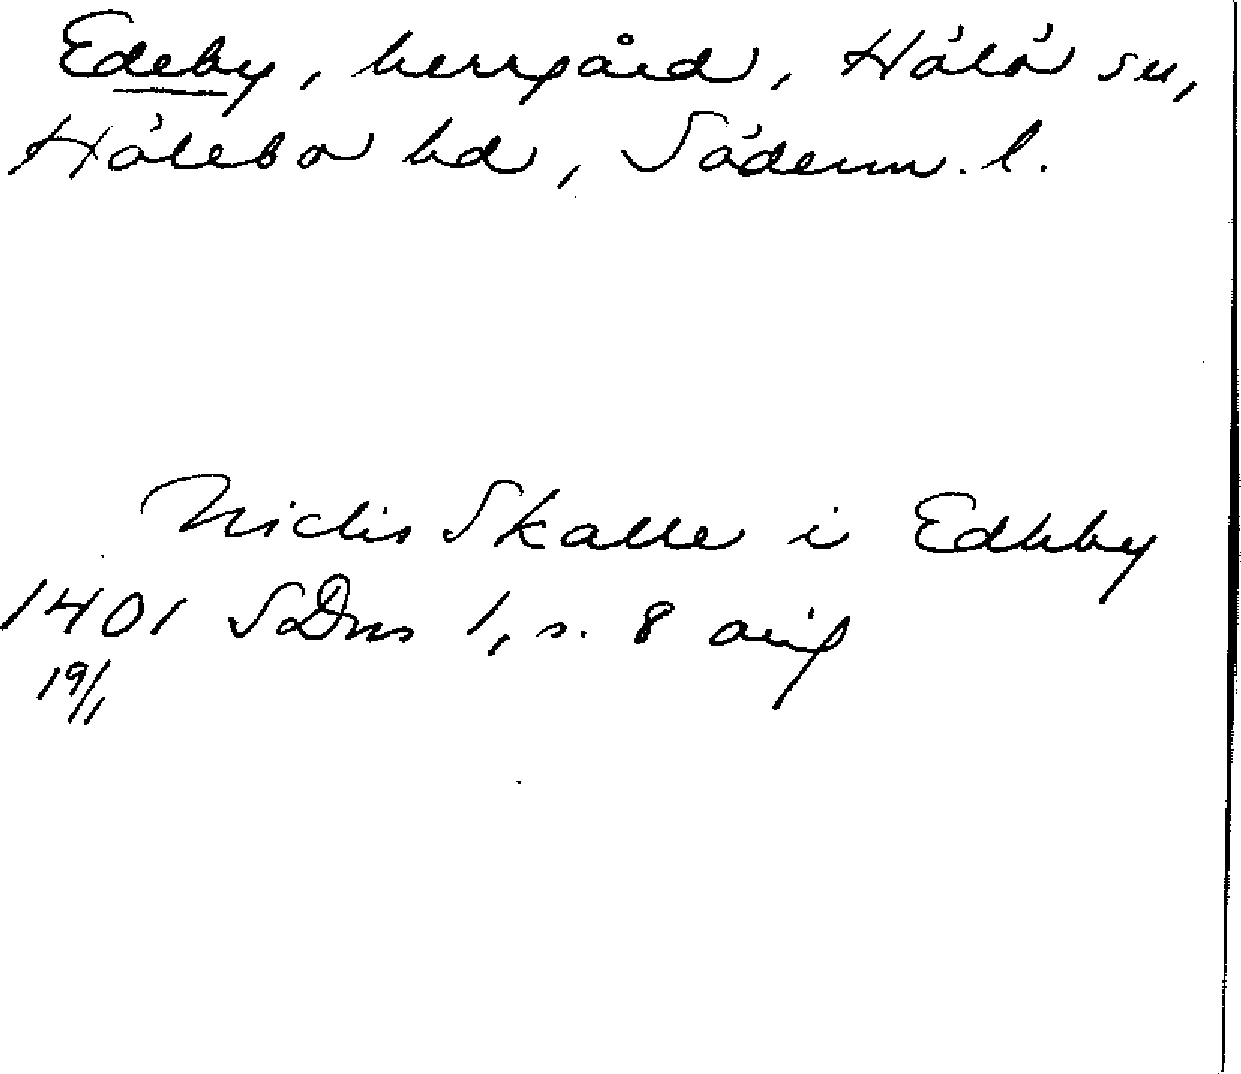 Edeby, herrgård, Hölö sn,
Hölebo hd, Söderm. l.
Niclis Skalle i Edhby
1401 SDns 1, s. 8 orig
19/1